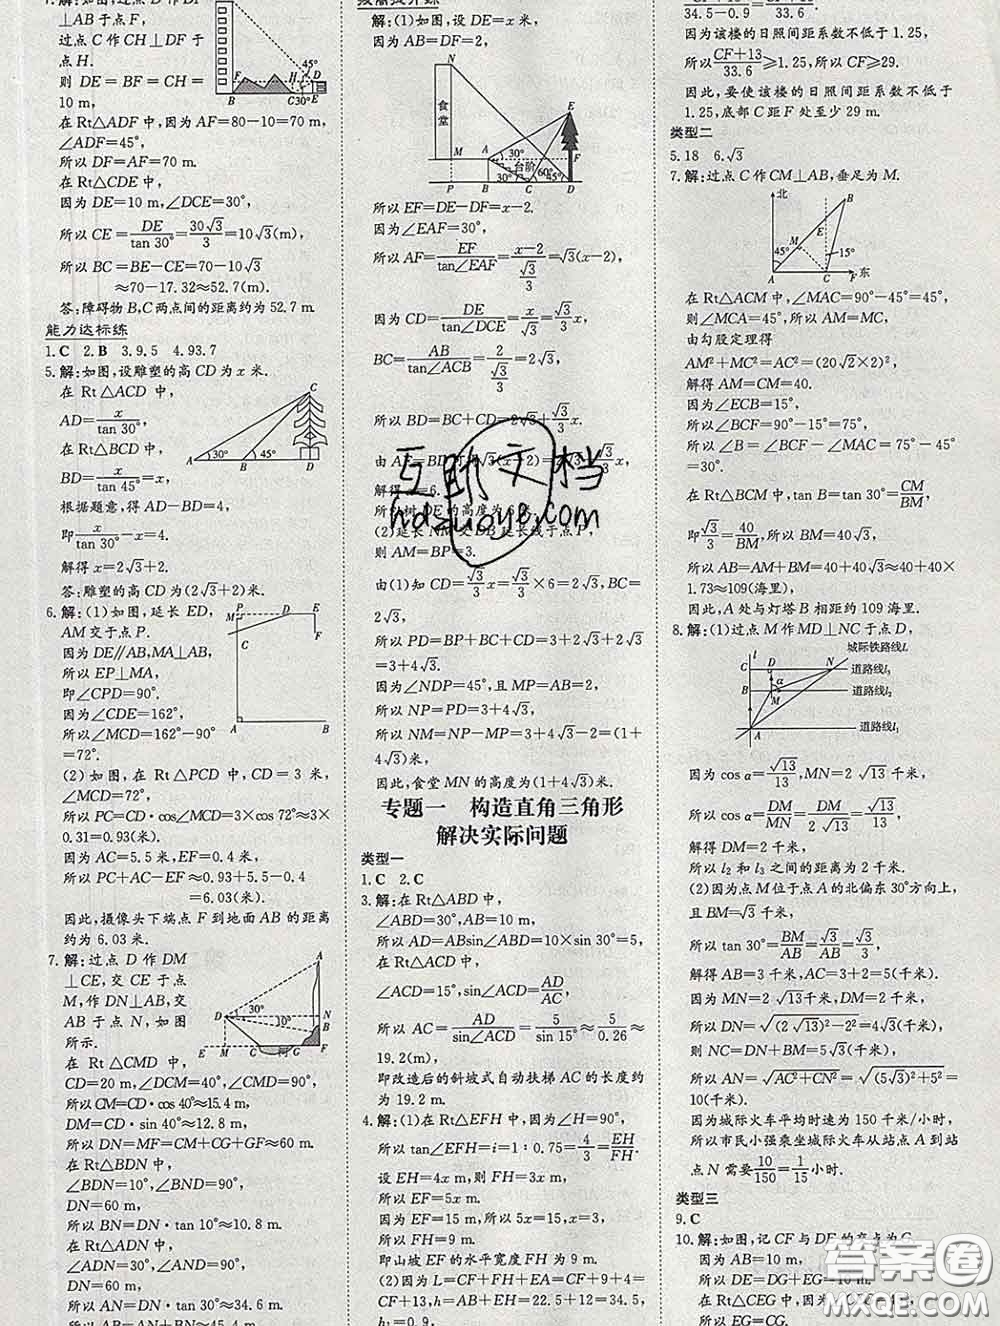 7.解:如图,过点 D 作 DF
⊥AB 于点 F,
过点 C 作 CH⊥DF 于
点 H.
则 DE=BF=CH=
10 m,
在 Rt△ADF 中,因为 AF=80-10=70 m,
∠ADF=45°,
所以 DF=AF=70 m.
在 Rt△CDE 中,
因为 DE=10 m,∠DCE=30°,
所以 CE=DE/tan 30°=30√3/3=10√3(m),
所以 BC=BE-CE=70-10√3
≈70-17.32≈52.7 m.
答:障碍物 B,C 两点间的距离约为 52.7 m.
能力达标练
1.C 2.B 3.9.5 4.93.7
5.解:如图,设雕塑的高 CD 为 x 米.
在 Rt△ACD 中,
AD=x/tan 30°,
在 Rt△BCD 中,
BD=x/tan 45°=x,
根据题意,得 AD-BD=4,
即x/tan 30°-x=4,
解得 x=2√3+2.
答:雕塑的高 CD 为(2√3+2)米.
6.解:(1)如图,延长 ED,
AM 交于点 P.
因为 DE∥AB,MA⊥AB,
所以 EP⊥MA,
即∠CPD=90°.
因为∠CDE=162°,
所以∠MCD=162°-90°
=72°.
(2)如图,在 Rt△PCD 中,CD=3 米,
∠MCD=72°,
所以 PC=CD·cos∠MCD=3×cos 72°≈3×
0.31=0.93(米).
因为 AC=5.5 米,EF=0.4 米,
所以 PC+AC-EF≈0.93+5.5-0.4
=6.03(米).
因此,摄像头下端点 F 到地面 AB 的距离
约为 6.03 米.
7.解:过点 D 作 DM
⊥CE,交 CE 于点
M,作 DN⊥AB,交
AB 于点 N,如图
所示.
在 Rt△CMD 中,
CD=20 m,∠DCM=40°,∠CMD=90°,
所以 CM=CD·cos 40°≈15.4 m,
DM=CD·sin 40°≈12.8 m,
所以 DN=MF=CM+CG+GF=60 m.
在 Rt△BDN 中,
∠BDN=10°,∠BND=90°,
DN=60 m,
所以 BN=DN·tan 10°≈10.8 m.
在 Rt△ADN 中,
∠ADN=30°,∠AND=90°,
DN=60 m,
所以 AN=DN·tan 30°≈34.6 m.
拔高提升练
解:(1)如图,设 DE=x 米.
因为 AB=DF=2,
食堂
台阶
所以 EF=DE-DF=x-2.
因为∠EAF=30°,
所以 AF=EF/tan∠EAF=(x-2)/(√3/3)=√3(x-2),
因为 CD=DE/tan∠DCE=x/√3=√3/3 x,
BC=AB/tan∠ACB=2/(√3/3)=2√3,
所以 BD=BC+CD=2√3+√3/3 x.
由 AF=BD 可得√3(x-2)=2√3+√3/3 x,
解得 x=6.
所以树 DE 的高度为 6 米.
(2)延长 NM 交 DB 延长线于点 P,
则 AM=BP=3.
由(1)知 CD=√3/3 x=√3/3×6=2√3,BC=
2√3,
所以 PD=BP+BC+CD=3+2√3+2√3
=3+4√3.
因为∠NDP=45°,且 MP=AB=2,
所以 NP=PD=3+4√3,
所以 NM=NP-MP=3+4√3-2=(1+
4√3)米,
因此,食堂 MN 的高度为(1+4√3)米.
专题一 构造直角三角形
解决实际问题
类型一
1.C 2.C
3.解:在 Rt△ABD 中,
∠ABD=30°,AB=10 m,
所以 AD=ABsin∠ABD=10×sin 30°=5,
在 Rt△ACD 中,
∠ACD=15°,sin∠ACD=AD/AC,
所以 AC=AD/sin∠ACD=5/sin 15°≈5/0.26≈
19.2(m),
即改造后的斜坡式自动扶梯 AC 的长度约
为 19.2 m.
4.解:(1)在 Rt△EFH 中,因为∠H=90°,
所以 tan∠EFH=i=1∶0.75=4/3=EH/FH.
设 EH=4x m,则 FH=3x m,
所以 EF=5x m.
因为 EF=15 m,所以 5x=15,x=3,
所以 FH=3x=9 m.
即山坡 EF 的水平宽度 FH 为 9 m.
(2)因为 L=CF+FH+EA=CF+9+4=
CF+13,h=AB+EH=22.5+12=34.5,
h₁=0.9,
因为该楼的日照间距系数不低于 1.25,
所以(CF+13)/33.6≥1.25,所以 CF≥29.
因此,要使该楼的日照间距系数不低于
1.25,底部 C 距 F 处至少 29 m.
类型二
5.18 6.√3
7.解:过点 C 作 CM⊥AB,垂足为 M.
在 Rt△ACM 中,∠MAC=90°-45°=45°,
则∠MCA=45°,所以 AM=MC.
由勾股定理得
AM²+MC²=AC²=(20√2×2)²,
解得 AM=CM=40.
因为∠ECB=15°,
所以∠BCF=90°-15°=75°,
所以∠B=∠BCF-∠MAC=75°-45°
=30°.
在 Rt△BCM 中,tan B=tan 30°=CM/BM,
即√3/3=40/BM,所以 BM=40√3,
所以 AB=AM+BM=40+40√3≈40+40×
1.73≈109(海里).
因此,A 处与灯塔 B 相距约 109 海里.
8.解:(1)过点 M 作 MD⊥NC 于点 D,
城际铁路线l
道路线l₃
道路线l₂
道路线l₁
因为 cos α=√13/13,MN=2√13 千米,
所以 cos α=DM/MN=DM/2√13=√13/13,
解得 DM=2 千米,
所以 l₂ 和 l₃ 之间的距离为 2 千米.
(2)因为点 M 位于点 A 的北偏东 30°方向上,
且 BM=√3 千米,
所以 tan 30°=BM/AB=√3/AB=√3/3,
解得 AB=3 千米,AC=3+2=5(千米).
因为 MN=2√13千米,DM=2 千米,
所以 DN=√((2√13)²-2²)=4√3(千米),
则 NC=DN+BM=5√3(千米),
所以 AN=√(AC²+CN²)=√((5√3)²+5²)=
10(千米).
因为城际火车平均时速为 150 千米/小时,
所以市民小强乘坐城际火车从站点 A 到站
点 N 需要10/150=1/15小时.
类型三
9.C
10.解:如图,记 CF 与 DE 的交点为 G.
因为 AB=10 m,
所以 DE=DG+EG=10 m.
在 Rt△CEG 中,
所以 EG=CG.
互助文档
hdzuoye.com
答案圈
MXQE.COM